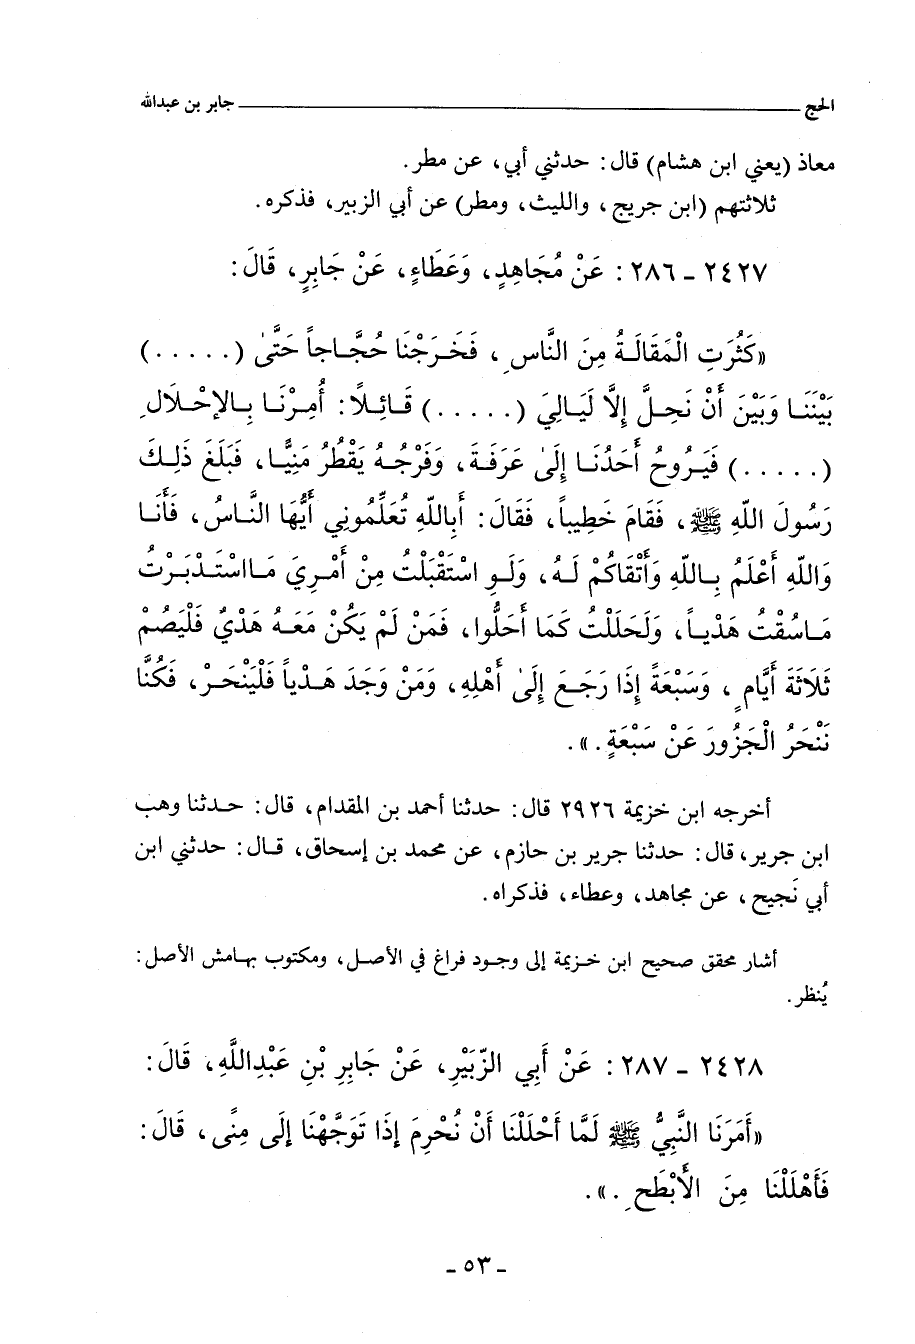 الحج ــــــــــ جابر بن عبدالله
معاذ (يعني ابن هشام) قال: حدثني أبي، عن مطر.
ثلاثتهم (ابن جريج، والليث، ومطر) عن أبي الزبير، فذكره.
٢٤٢٧ - ٢٨٦: عَنْ مُجَاهِدٍ، وَعَطَاءٍ، عَنْ جَابِرٍ، قَالَ:
«كَثُرَتِ الْمَقَالَةُ مِنَ النَّاسِ، فَخَرَجْنَا حُجَّاجاً حَتَّىٰ (.....)
بَيْنَنَا وَبَيْنَ أَنْ نَحِلَّ إِلَّا لَيَالِيَ (.....) قَائِلًا: أُمِرْنَا بِالإِحْلَالِ
(.....) فَيَرُوحُ أَحَدُنَا إِلَىٰ عَرَفَةَ، وَفَرْجُهُ يَقْطُرُ مَنِيًّا، فَبَلَغَ ذٰلِكَ
رَسُولَ اللّٰهِ ﷺ، فَقَامَ خَطِيباً، فَقَالَ: أَبِاللّٰهِ تُعَلِّمُونِي أَيُّهَا النَّاسُ، فَأَنَا
وَاللّٰهِ أَعْلَمُ بِاللّٰهِ وَأَتْقَاكُمْ لَهُ، وَلَوِ اسْتَقْبَلْتُ مِنْ أَمْرِيَ مَااسْتَدْبَرْتُ
مَاسُقْتُ هَدْياً، وَلَحَلَلْتُ كَمَا أَحَلُّوا، فَمَنْ لَمْ يَكُنْ مَعَهُ هَدْيٌ فَلْيَصُمْ
ثَلَاثَةَ أَيَّامٍ، وَسَبْعَةً إِذَا رَجَعَ إِلَىٰ أَهْلِهِ، وَمَنْ وَجَدَ هَدْياً فَلْيَنْحَرْ، فَكُنَّا
نَنْحَرُ الْجَزُورَ عَنْ سَبْعَةٍ.».
أخرجه ابن خزيمة ٢٩٢٦ قال: حدثنا أحمد بن المقدام، قال: حدثنا وهب
ابن جرير، قال: حدثنا جرير بن حازم، عن محمد بن إسحاق، قال: حدثني ابن
أبي نَجيح، عن مجاهد، وعطاء، فذكراه.
أشار محقق صحيح ابن خزيمة إلى وجود فراغ في الأصل، ومكتوب بهامش الأصل:
يُنظر.
٢٤٢٨ - ٢٨٧: عَنْ أَبِي الزُّبَيْرِ، عَنْ جَابِرِ بْنِ عَبْدِاللَّهِ، قَالَ:
«أَمَرَنَا النَّبِيُّ ﷺ لَمَّا أَحْلَلْنَا أَنْ نُحْرِمَ إِذَا تَوَجَّهْنَا إِلَى مِنًى، قَالَ:
فَأَهْلَلْنَا مِنَ الْأَبْطَحِ.».
- ٥٣ -